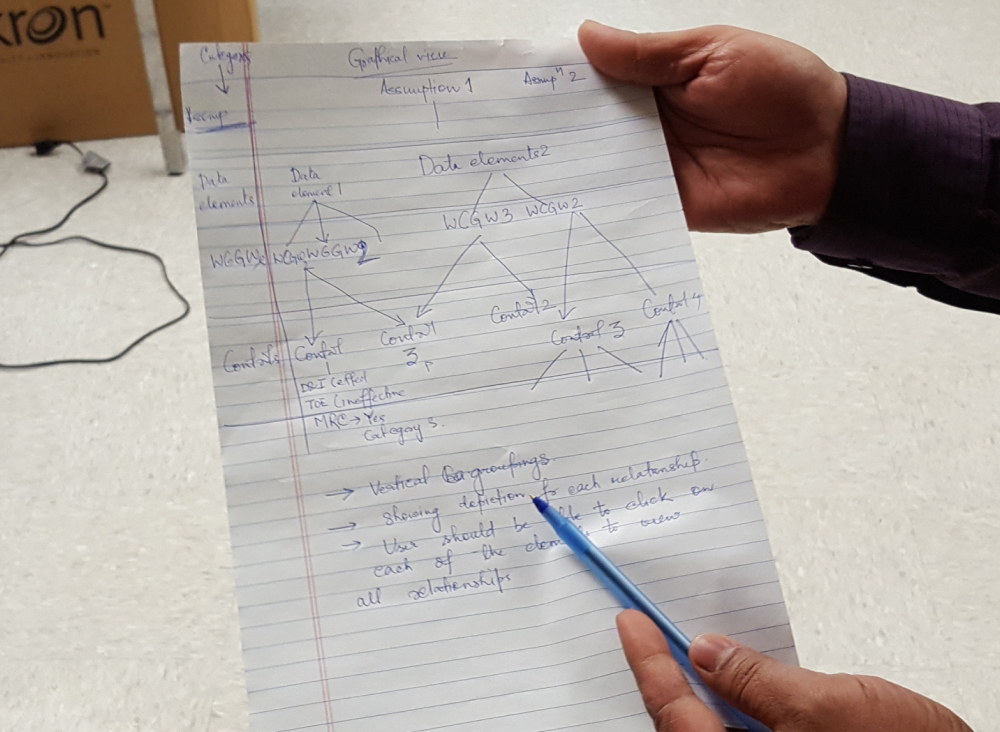 kron
Category Graphical view
Assumption 1 Assumpⁿ 2
Data elements2
Data elements
Data element 1
WCGW3 WCGW2
WCGWs WCGW WCGW2
Control 2 Control 4
Controls Control Control 3 Control 3
TOE (ineffective
MRC → Yes
Category 3.
→ Vertical groupings.
→ Showing depiction for each relationship.
→ User should be able to click on
each of the to view
all relationships